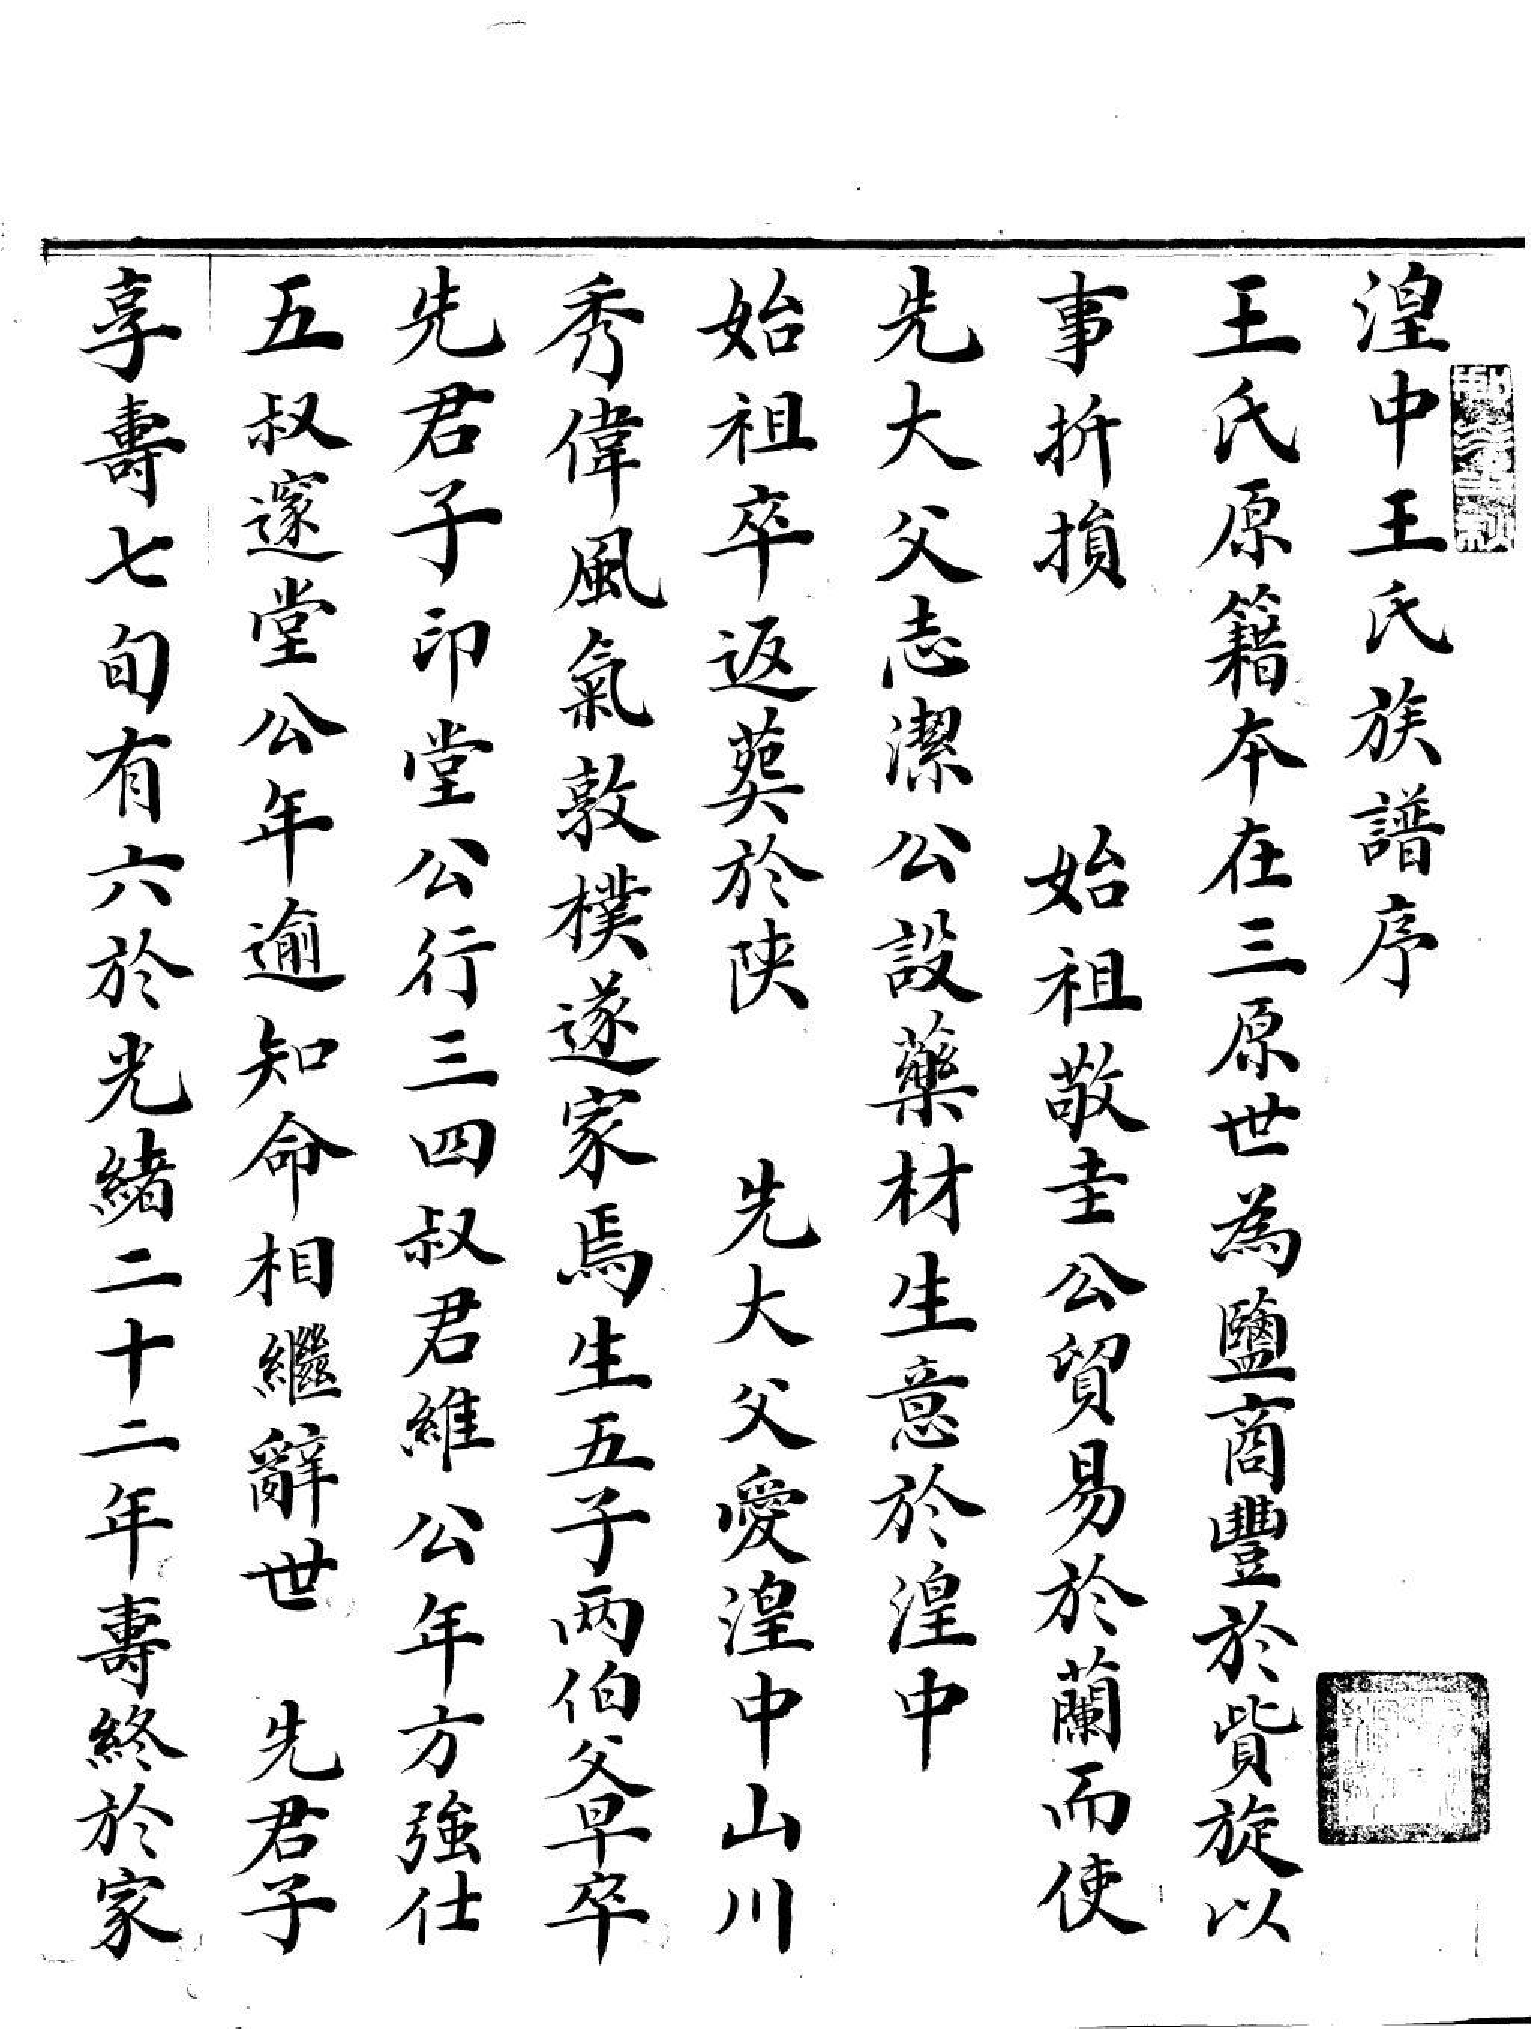 湟中王氏族譜序
王氏原籍本在三原世為鹽商豐於貲旋以
事折損　　始祖敬圭公貿易於蘭而使
先大父志潔公設藥材生意於湟中
始祖卒返葬於陝　先大父愛湟中山川
秀偉風氣敦樸遂家焉生五子两伯父早卒
先君子印堂公行三四叔君維公年方強仕
五叔邃堂公年逾知命相繼辭世　先君子
享壽七旬有六於光緒二十二年壽終於家